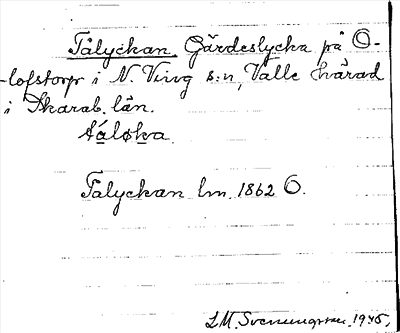 Tålyckan. Gärdeslycka på O-
-lofstorp i N. Ving s:n, Valle härad
i Skarab. län.
tálǫka
Talyckan lm. 1862 O.
L.M. Svenungsson, 1945,